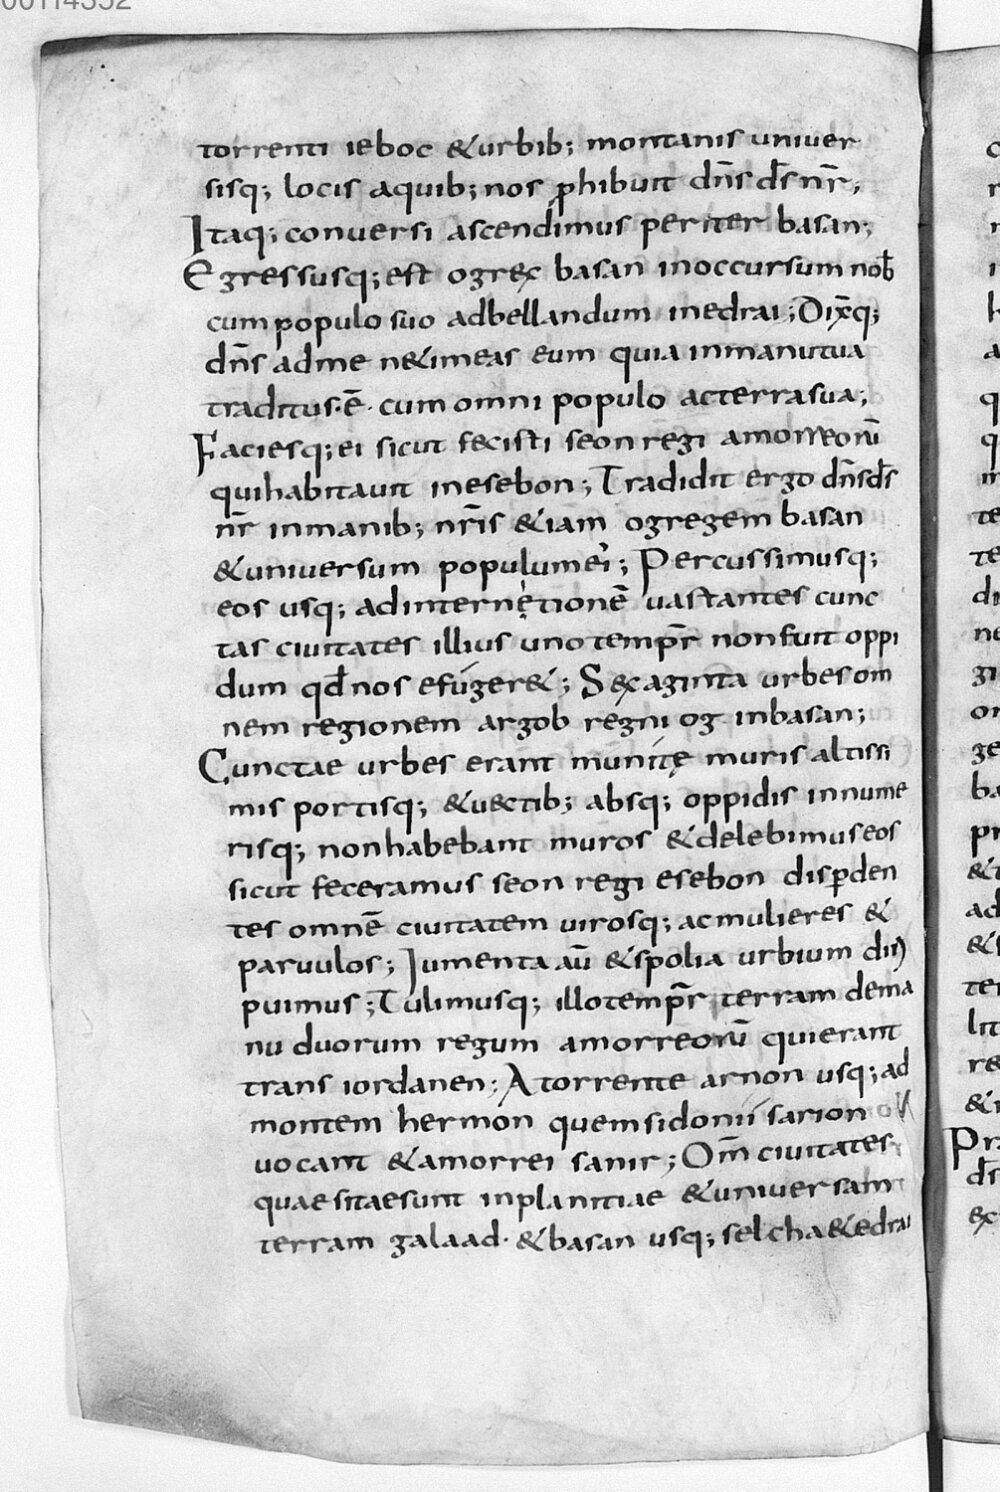 00114352
torrenti ieboc & urbib; montanis univer
sisq; locis aquib; nos ꝓhibuit dn̄s ds̄ nr̄;
Itaq; conversi ascendimus per iter basan;
Egressusq; est og rex basan in occursum nob̄
cum populo suo ad bellandum in edrai; Dix̄q;
dn̄s ad me ne timeas eum quia in manu tua
traditus·ē· cum omni populo ac terra sua;
Faciesq; ei sicut fecisti seon regi amorreorū
qui habitavit in esebon; Tradidit ergo dn̄s ds̄
nr̄ in manib; nr̄is & iam og regem basan
& universum populum ei'; Percussimusq;
eos usq; ad internetionē vastantes cunc
tas civitates illius uno tempr̄ non fuit oppi
dum qd̄ nos efúger&; Sexaginta urbes om
nem regionem argob regni og in basan;
Cunctae urbes erant munitę muris altissi
mis portisq; & vectib; absq; oppidis innume
risq; non habebant muros & delebimus eos
sicut feceramus seon regi esebon disꝑden
tes omnē civitatem virosq; ac mulieres &
parvulos; Iumenta aū & spolia urbium diri
puimus; Tulimusq; illo tempr̄ terram de ma
nu duorum regum amorreorū qui erant
trans iordanen; A torrente arnon usq; ad
montem hermon quem sidonii sarion
vocant & amorrei sanir; Om̄ civitates
quae sitae sunt in planitiae & universam
terram galaad· & basan usq; selcha & edrai